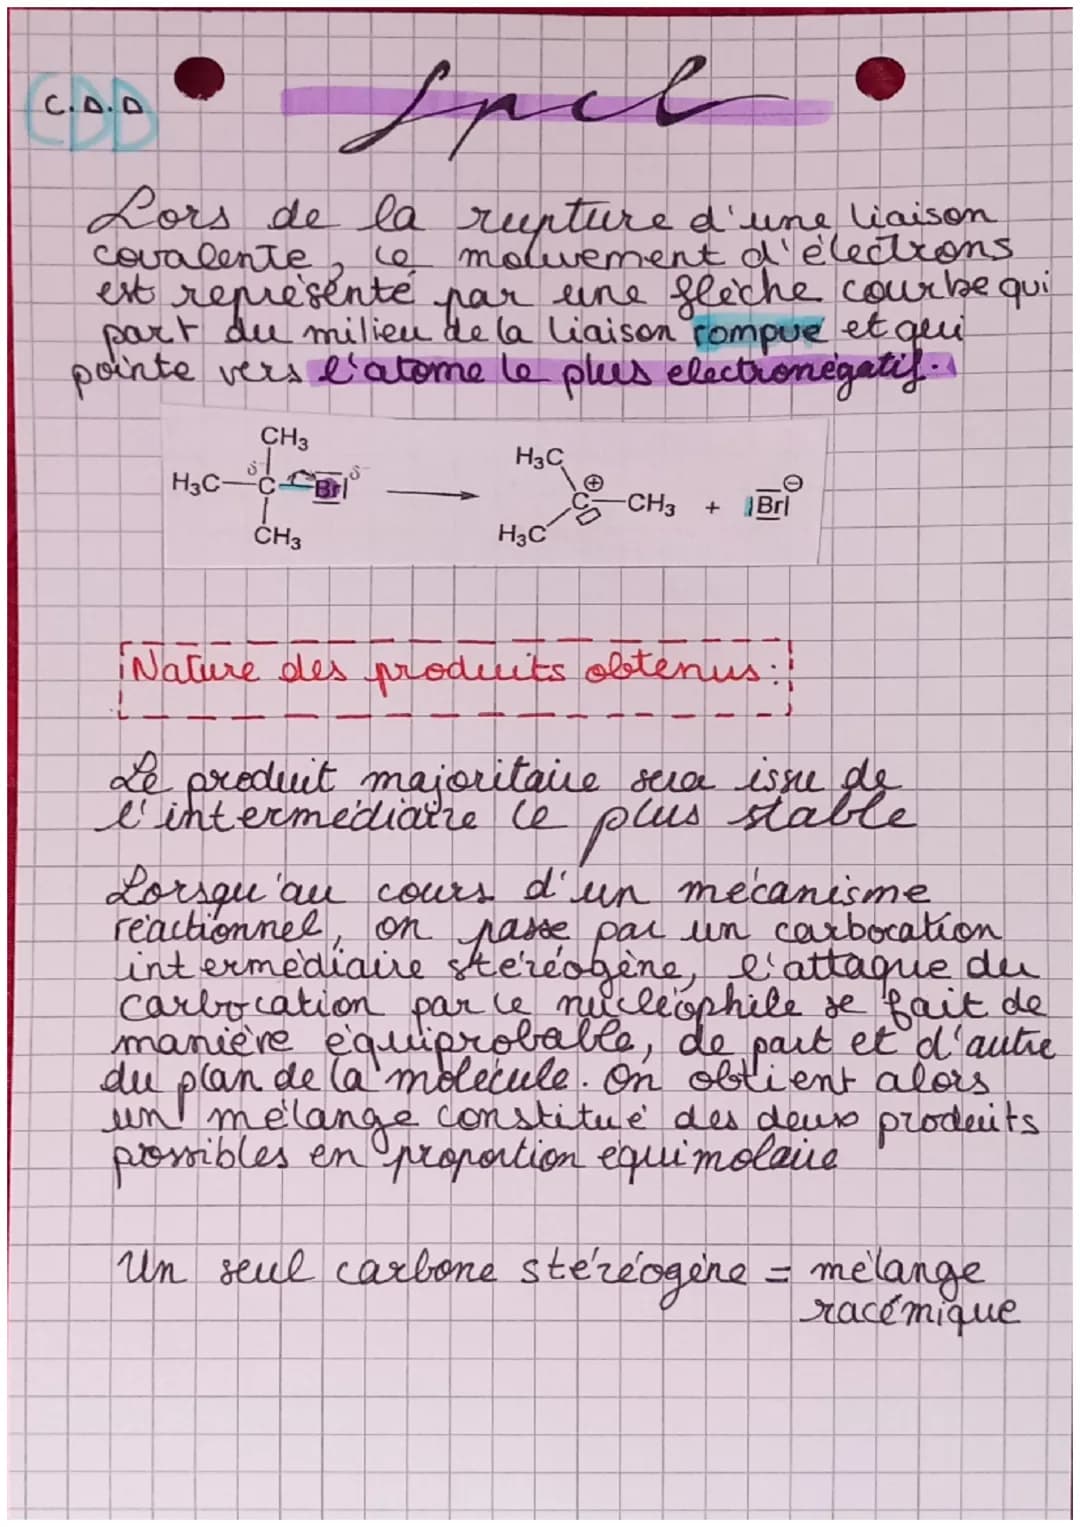 C.D.D
CDD
Spcl
Lors de la rupture d'une liaison
covalente, le mouvement d'électrons
est représenté par une flèche courbe qui
part du milieu de la liaison rompue et qui
pointe vers l'atome le plus electronégatif.
CH3
H3C—C—Br δ-
CH3
H3C
C ⊕ —CH3 + |Br| ⊖
H3C
Nature des produits obtenus :
Le produit majoritaire sera issu de
l'intermédiaire le plus stable
Lorsqu'au cours d'un mécanisme
réactionnel, on passe par un carbocation
intermédiaire stéréogène, l'attaque du
carbocation par le nucléophile se fait de
manière équiprobable, de part et d'autre
du plan de la molécule. On obtient alors
un mélange constitué des deux produits
possibles en proportion équimolaire
Un seul carbone stéréogène = mélange
racémique